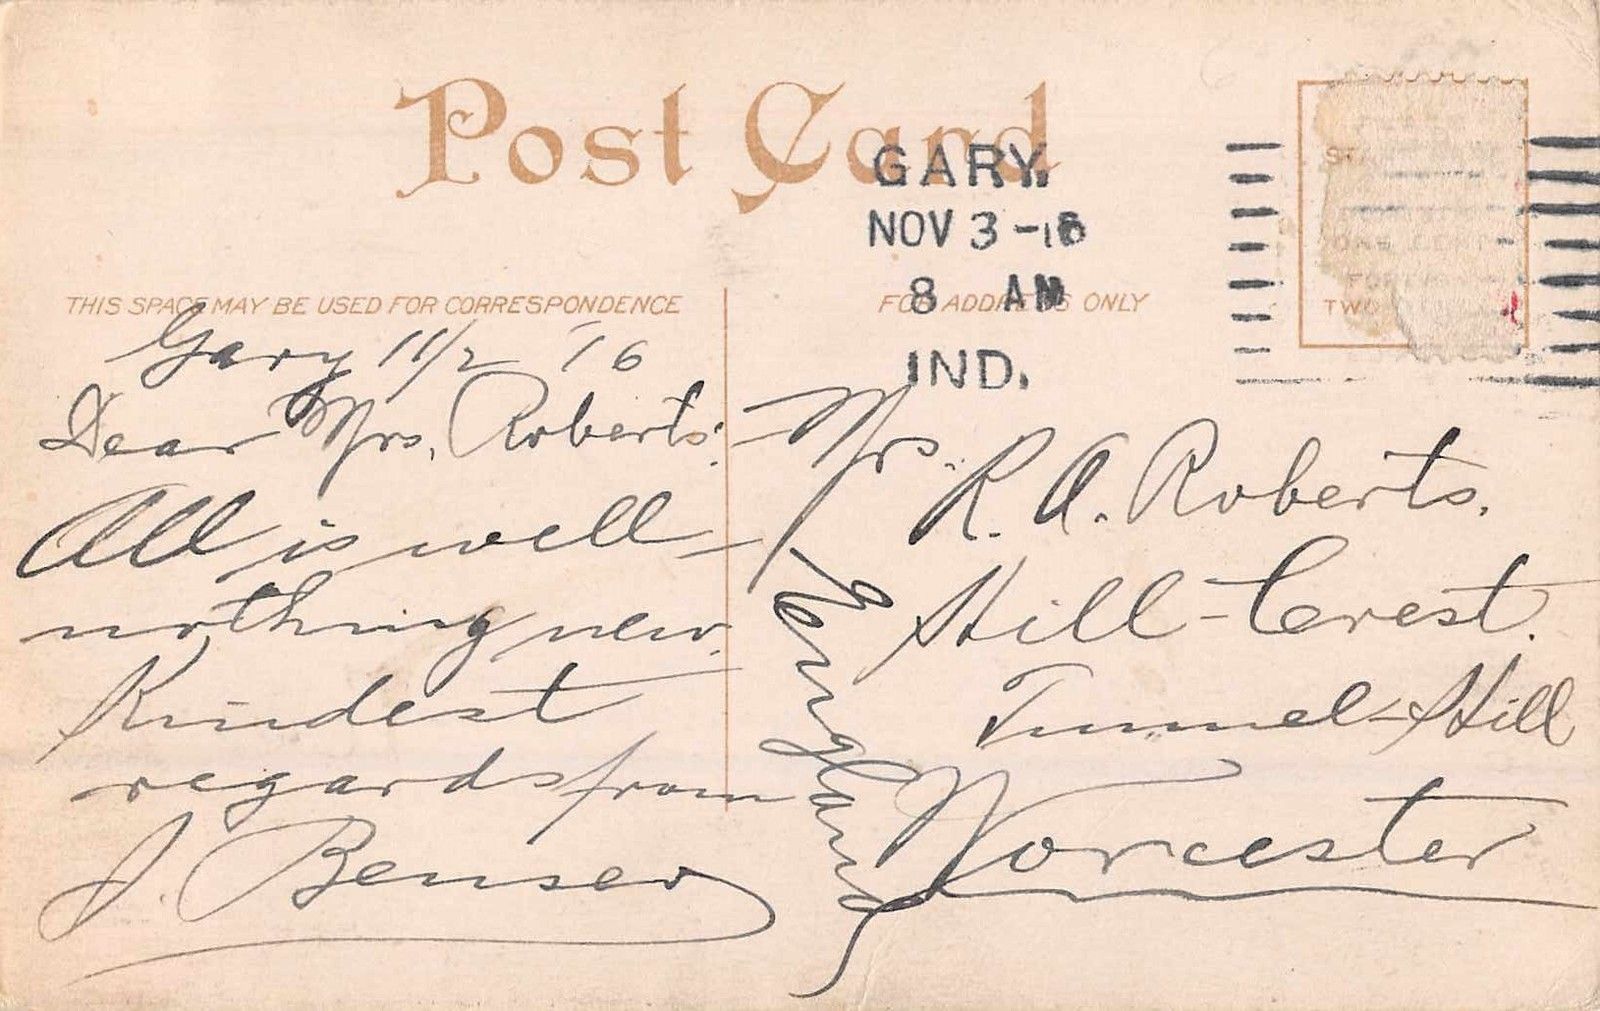 Post Card
GARY.
NOV 3-16
8 AM
IND.
THIS SPACE MAY BE USED FOR CORRESPONDENCE
FOR ADDRESS ONLY
ONE CENT
TWO
Gary 11/2 '16
Dear Mrs. Roberts:
All is well –
nothing new.
Kindest
regards from
J. Benser
Mrs. R. A. Roberts.
Hill-Crest.
Tunnel-Hill
Worcester
England